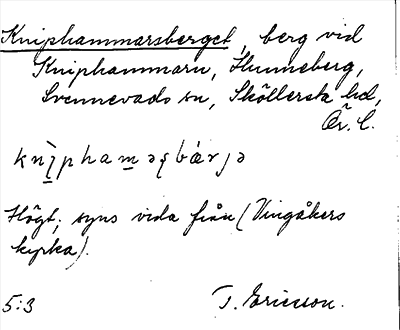 Kniphammarsberget, berg vid
Kniphammarn, Hunneberg,
Svennevads sn, Sköllersta hd,
Ör. l.
Högt; syns vida från (Vingåkers
kyrka).
5:3 T. Ericsson.